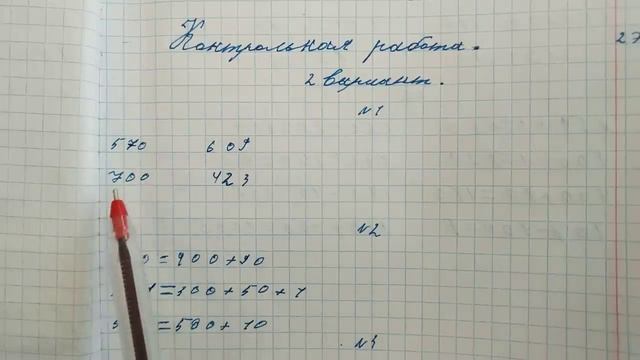 Контрольная работа.
2 вариант.
27
№1
570 609
700 423
№2
=900+90
=300+50+1
=500+10
№3